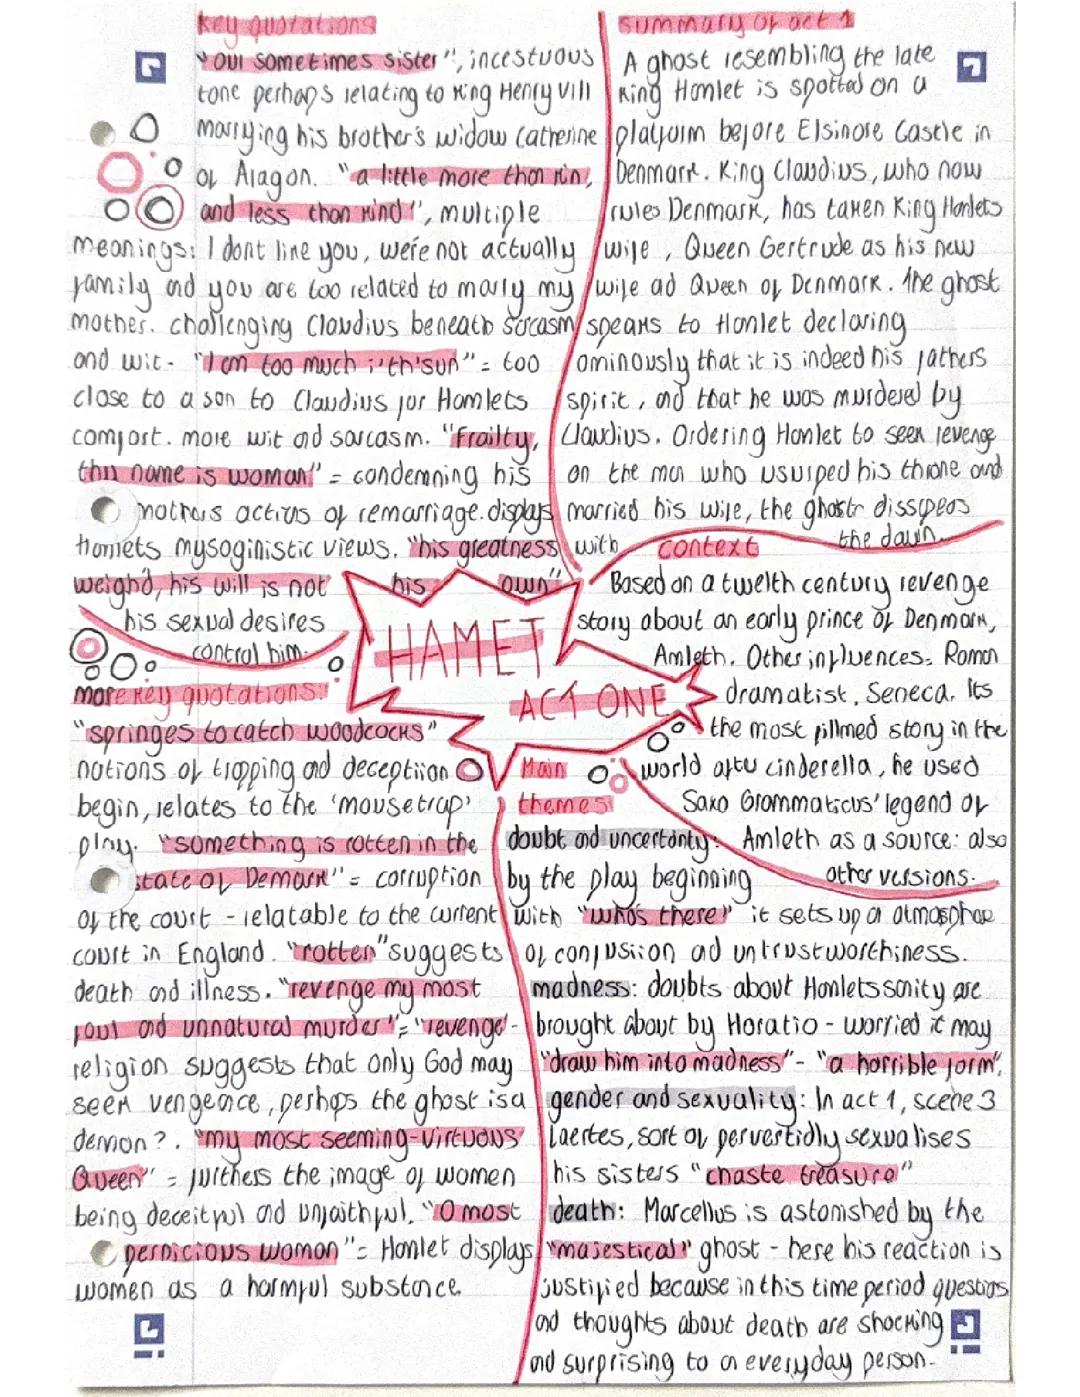 key quotations
"our sometimes sister", incestuous
tone perhaps relating to King Henry VIII
marrying his brother's widow Catherine
of Aragon. "a little more than kin,
and less than kind", multiple
meanings: I dont like you, we're not actually
family and you are too related to marry my
mother. challenging Claudius beneath sarcasm
and wit- "I am too much i'th'sun" = too
close to a son to Claudius for Hamlets
comfort. more wit and sarcasm. "frailty,
thy name is woman" = condemning his
mothers actions of remarriage. displays
Hamlets mysoginistic views. "his greatness
weigh'd, his will is not his own"
his sexual desires
control him.
more key quotations:
"springes to catch woodcocks"
notions of trapping and deception
begin, relates to the 'mousetrap'
play. "something is rotten in the
state of Demark" = corruption
of the court - relatable to the current
court in England. "rotten" suggests
death and illness. "revenge my most
foul and unnatural murder" = "revenge" -
religion suggests that only God may
seek vengence, perhaps the ghost is a
demon?. "my most seeming-virtuous
Queen" = furthers the image of women
being deceitful and unfaithful. "O most
pernicious woman" = Hamlet displays
women as a harmful substance
HAMET
ACT ONE
summary of act 1
A ghost resembling the late
King Hamlet is spotted on a
platform before Elsinore Castle in
Denmark. King Claudius, who now
rules Denmark, has taken King Hamlets
wife, Queen Gertrude as his new
wife ad Queen of Denmark. The ghost
speaks to Hamlet declaring
ominously that it is indeed his fathers
spirit, and that he was murdered by
Claudius. Ordering Hamlet to seek revenge
on the man who usurped his throne and
married his wife, the ghost disspears
with the dawn.
context
Based on a twelth century revenge
story about an early prince of Denmark,
Amleth. Other influences: Roman
dramatist, Seneca. Its
the most filmed story in the
world after cinderella, he used
Saxo Grammaticus' legend of
Amleth as a source: also
other versions.
Main
themes
doubt and uncertanty:
by the play beginning
with "who's there" it sets up a atmosphae
of confusiion and untrustworthiness.
madness: doubts about Hamlets sanity are
brought about by Horatio - worried it may
"draw him into madness" - "a horrible form".
gender and sexuality: In act 1, scene 3
Laertes, sort of pervertidly sexualises
his sisters "chaste treasure"
death: Marcellus is astonished by the
"majestical" ghost - here his reaction is
justified because in this time period questions
and thoughts about death are shocking
and surprising to an everyday person.